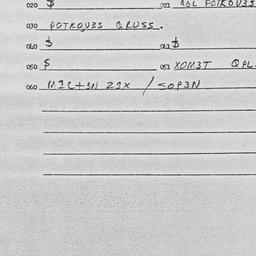 020 $ 021 AGL POTKOU33
030 POTKOU3S QRUSS.
040 $ 041 $
050 $ 051 XOM3T QPL.
060 MIC+3N 22X / 50P3N